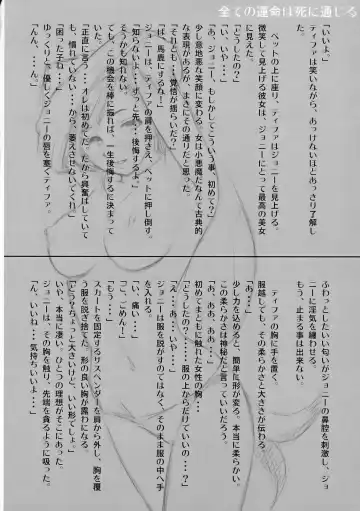 全ての運命は死に通じる
「いいよ」
ティファは笑いながら、あっけない日とあっさり了解し
た。
ベットの上に座り、ティファはジョニーを見上げる。
微笑して見上げる彼女は、ジョニーにとって最高の美女
に見えた。
「どうしたの？」
「ジョニー、もしかしてこういう事、初めて？」
少し意地悪な笑顔に変わる。女は小悪魔だなんて古典的
な表現があるが、まさにその通りだと思った。
「それとも…覚悟が揺らいだ？」
「ば、馬鹿にするな！」
「知らないよ…ずっと先…後悔するよ」
ジョニーは、ティファの肩を押さえ、ベットに押し倒す。
そうかも知れない。
でも、この機会を棒に振れば、一生後悔するに決まって
いた。
「正直に言う…オレは初めてだ。だから興奮はしていて
も、慣れていない…から、萎えさせないでくれ!!」
「困った子ね…」
ゆっくりと、優しくジョニーの唇を塞ぐティファ。
「んん、んん。」
ふわっとしたいい匂いがジョニーの鼻腔を刺激し、ジョ
ニーに淫気を纏わせる。
もう、止まる事は出来ない。
ティファの胸に手を置く。
服越しでも、その柔らかさと大きさが伝わる。
「あ…」
少し力を込めると、簡単に形が変る。本当に柔らかい。
この柔らかさは神秘だと言っていいいだろう。
「あ、ああ、ああ、あ…」
初めてまともに触れた女性の胸…
「どうしたの？……服の上からだけでいいの…？」
「え…あ…いや…」
ジョニーは服を脱がすのではなく、そのまま服の中へ手
を入れる。
「い、痛い…」
「ご、ごめん…」
「もう…」
スカートを固定するサスペンダーを肩から外し、胸を覆
う服を脱ぎ捨てた。形の良い胸が露わになる。
「どう？ちょっと大きいけど、いい形でしょ」
いや、本当に凄い。ひとつの理想がそこにあった。
ジョニーは、その胸を触り、先端を貪るように吸った。
「ん、いいね…気持ちいいよ…」